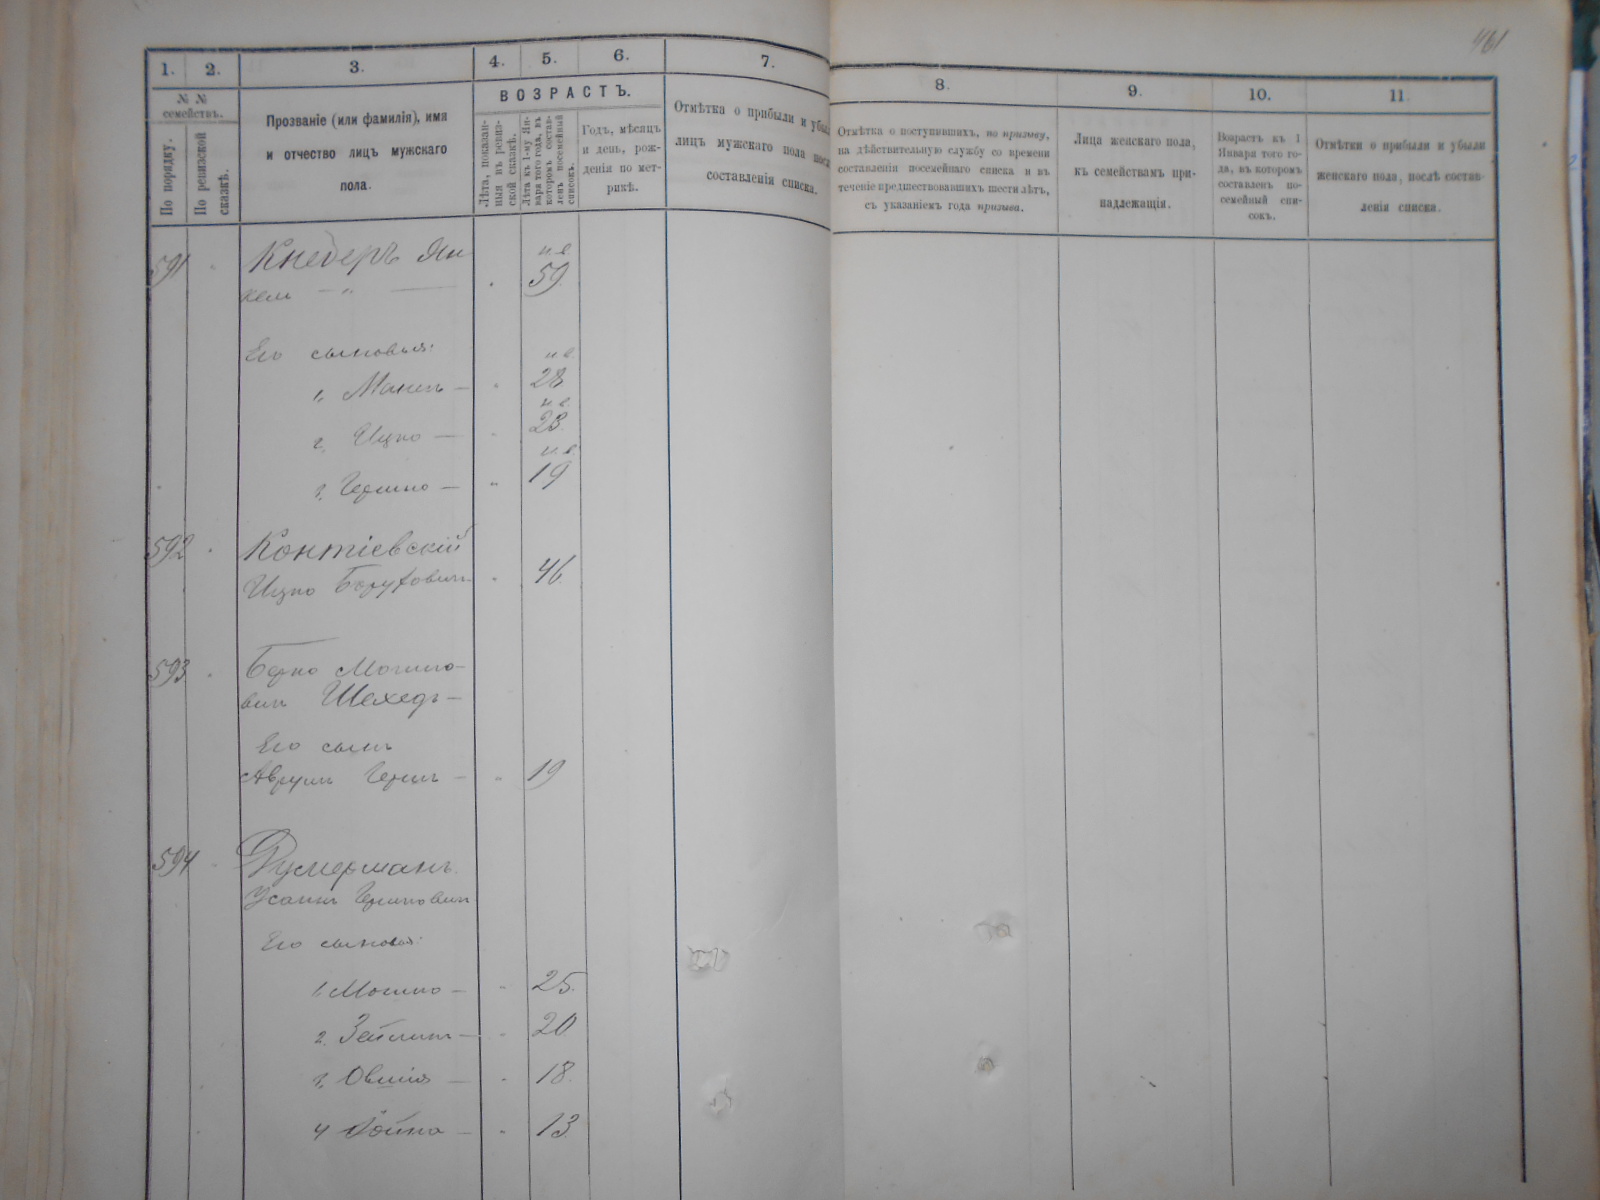 461
1. 2. 3. 4. 5. 6. 7.
8. 9. 10. 11
№ №
семействъ.
По порядку.
По ревизской
сказкѣ.
Прозваніе (или фамилія), имя
и отчество лицъ мужскаго
пола.
ВОЗРАСТЪ.
Лѣта, показан-
ныя въ ревиз-
ской сказкѣ.
Лѣта къ 1-му Ян-
варя того года, въ
которомъ состав-
ленъ посемейный
списокъ.
Годъ, мѣсяцъ
и день, рож-
денія по мет-
рикѣ.
Отмѣтка о прибыли и убы
лицъ мужскаго пола
составленія списка.
Отмѣтка о поступившихъ, по призыву,
на дѣйствительную службу со времени
составленія посемейнаго списка и въ
теченіе предшествовавшихъ шести лѣтъ,
съ указаніемъ года призыва.
Лица женскаго пола,
къ семействамъ при-
надлежащія.
Возрастъ къ 1
Января того го-
да, въ которомъ
составленъ по-
семейный спи-
сокъ.
Отмѣтки о прибыли и убыли
женскаго пола, послѣ состав-
ленія списка.
591 Кнедеръ Ян-
кель — „ — 59
Его сыновья:
1, — 28
2, Ицко — 23
3, Гершко — 19
592 Контіевскій
Ицко Боруховичъ 46
593 Берко Мошко-
вичъ
Его сынъ
Аврумъ Гершъ — 19
594
Гершковичъ
Его сыновья:
1 Мошко — 25
2. — 20
3, Овшія — 18
4 — 13